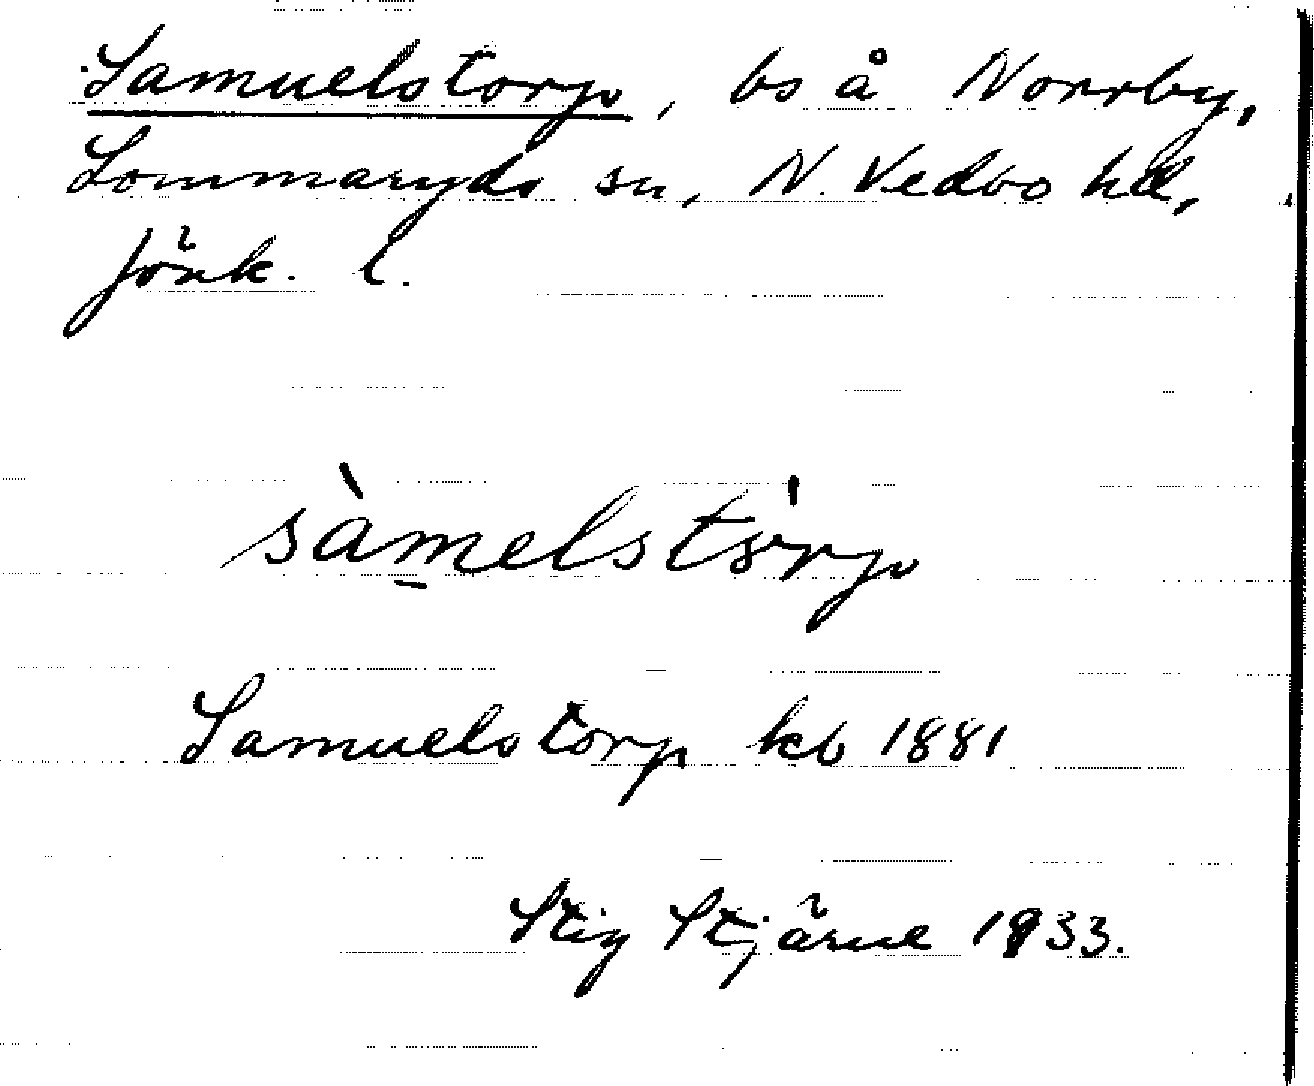 Samuelstorp, bs å Norrby,
Lommaryds sn, N. Vedbo hd,
Jönk. l.
sàmelstórp
Samuelstorp kb 1881
Stig Stjärne 1933.